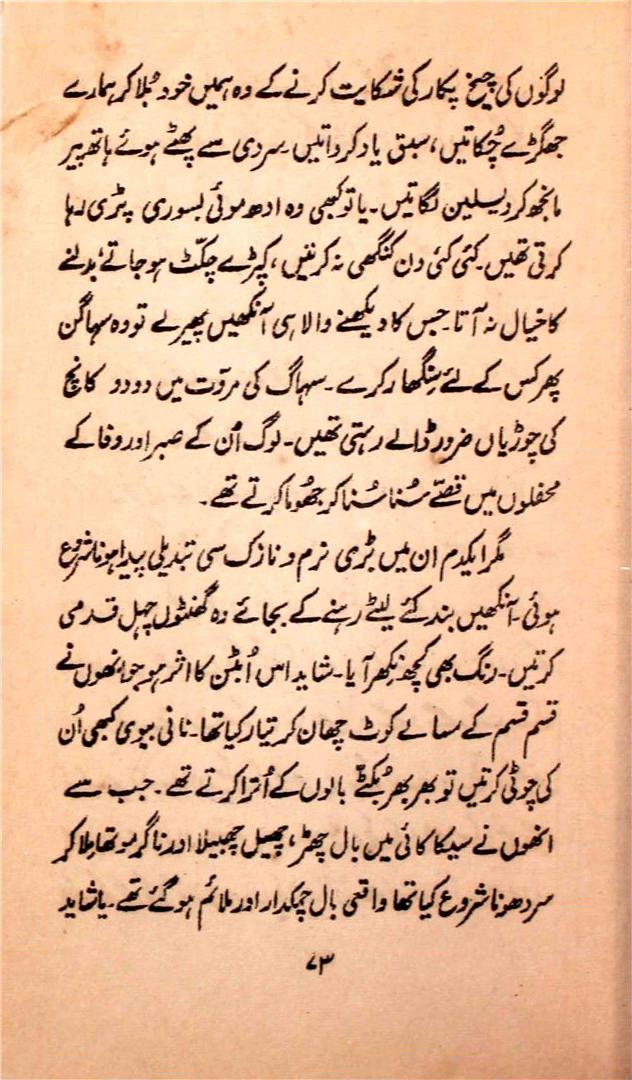 لوگوں کی چیخ پکار کی شکایت کرنے کے وہ ہمیں خود بُلا کر ہمارے
جھگڑے چُکاتیں، سبق یاد کرواتیں۔ سردی سے پھٹے ہوئے ہاتھ پیر
مانجھ کر ویسلین لگاتیں۔ یا تو کبھی وہ ادھ موئی بسوری پڑی رہا
کرتی تھیں۔ کئی کئی دن کنگھی نہ کرتیں، کپڑے چکٹ ہو جاتے، بدلنے
کا خیال نہ آتا۔ جس کا دیکھنے والا ہی آنکھیں پھیر لے تو وہ سہاگن
پھر کس کے لئے سنگھار کرے۔ سہاگ کی مروّت میں دو دو کانچ
کی چوڑیاں ضرور ڈالے رہتی تھیں۔ لوگ اُن کے صبر اور وفا کے
محفلوں میں قصّے سُنا سُنا کر جھُوما کرتے تھے۔
مگر ایکدم ان میں بڑی نرم و نازک سی تبدیلی پیدا ہونا شروع
ہوئی۔ آنکھیں بند کئے لیٹے رہنے کے بجائے وہ گھنٹوں چہل قدمی
کرتیں۔ رنگ بھی کچھ نکھر آیا۔ شاید اس اُبٹن کا اثر ہو جو انھوں نے
قسم قسم کے مسالے کوٹ چھان کر تیار کیا تھا۔ نانی بیوی کبھی اُن
کی چوٹی کرتیں تو بھر بھر بُکٹے بالوں کے اُترا کرتے تھے۔ جب سے
انھوں نے سیکاکائی میں بال چھڑ، چھیل چھبیلا اور ناگر موتھا ملا کر
سر دھونا شروع کیا تھا واقعی بال چمکدار اور ملائم ہو گئے تھے۔ یا شاید
۷۳